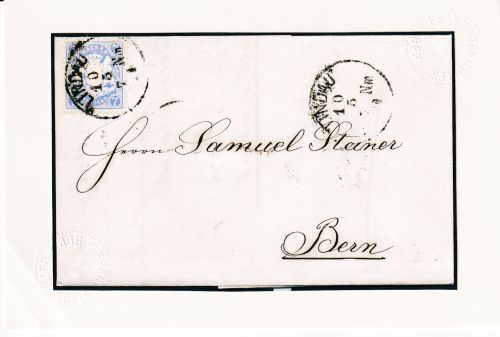 LINDAU
10
5
LINDAU
10
5
Nm
7
Herrn Samuel Steiner
Bern